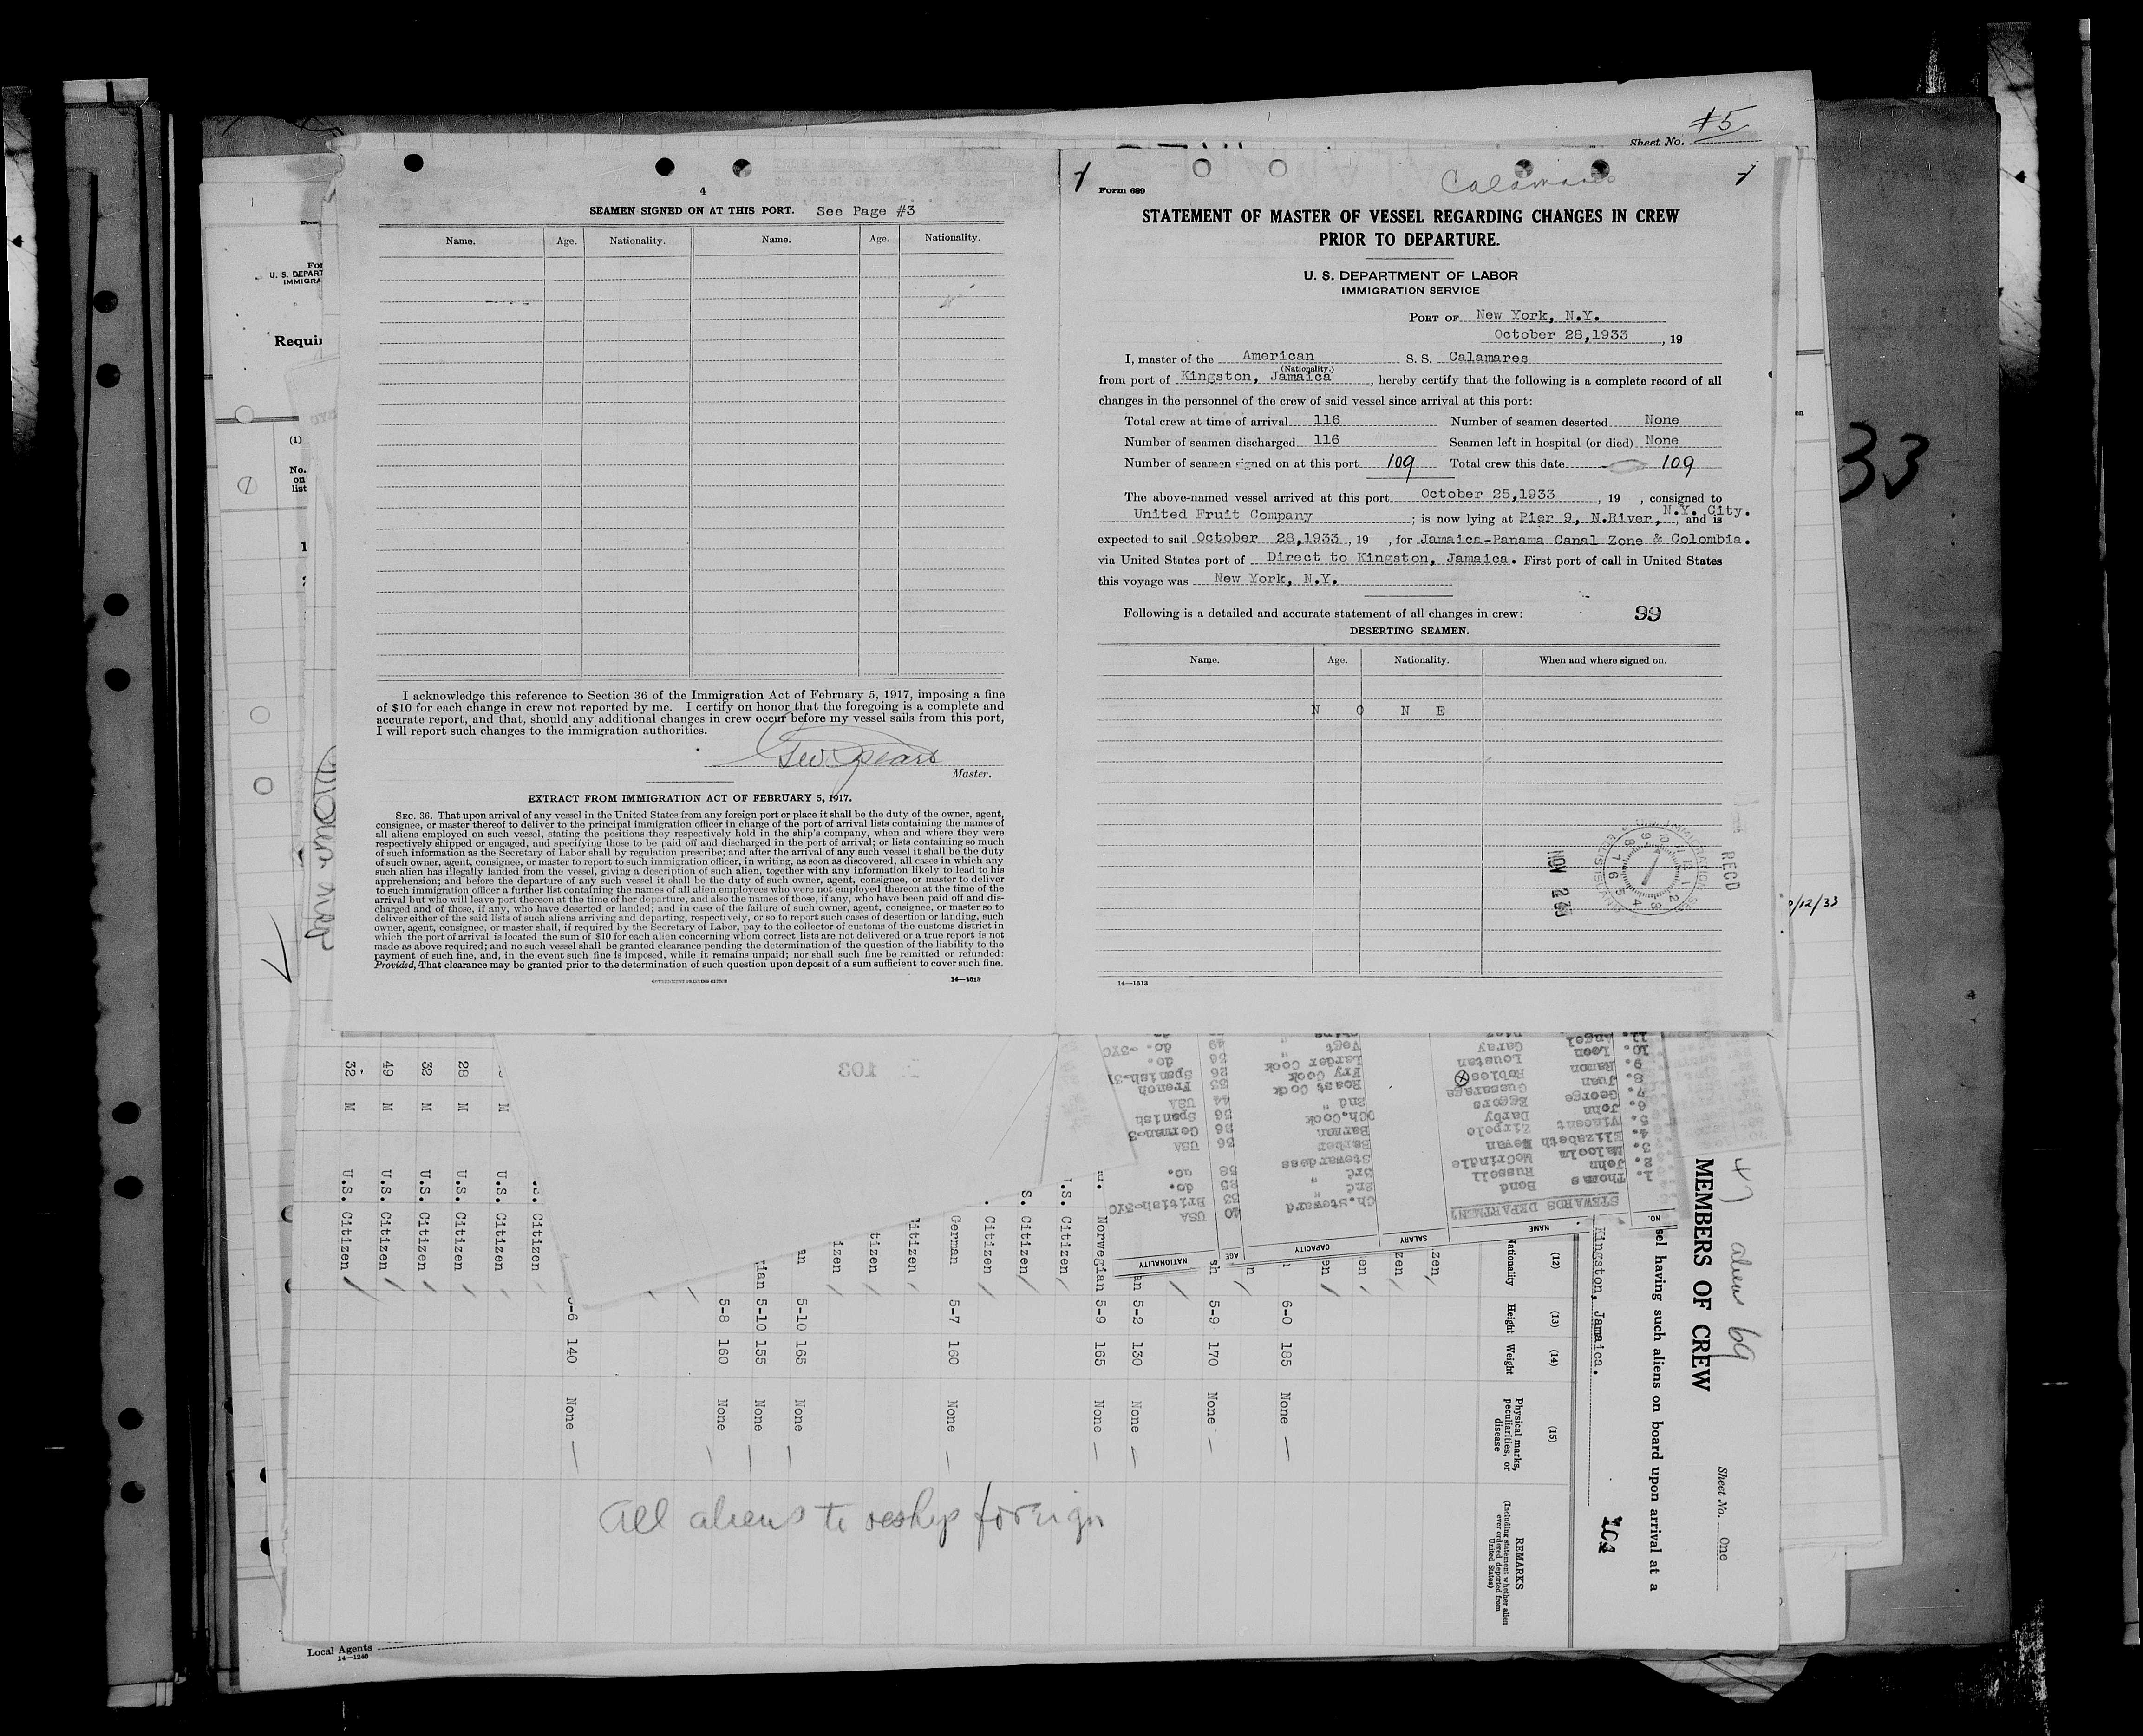 #5
Sheet No.
4
SEAMEN SIGNED ON AT THIS PORT. See Page #3
Name. Age. Nationality. Name. Age. Nationality.
I acknowledge this reference to Section 36 of the Immigration Act of February 5, 1917, imposing a fine
of $10 for each change in crew not reported by me. I certify on honor that the foregoing is a complete and
accurate report, and that, should any additional changes in crew occur before my vessel sails from this port,
I will report such changes to the immigration authorities.
Geo. Spears
Master.
EXTRACT FROM IMMIGRATION ACT OF FEBRUARY 5, 1917.
SEC. 36. That upon arrival of any vessel in the United States from any foreign port or place it shall be the duty of the owner, agent,
consignee, or master thereof to deliver to the principal immigration officer in charge of the port of arrival lists containing the names of
all aliens employed on such vessel, stating the positions they respectively hold in the ship's company, when and where they were
respectively shipped or engaged, and specifying those to be paid off and discharged in the port of arrival; or lists containing so much
of such information as the Secretary of Labor shall by regulation prescribe; and after the arrival of any such vessel it shall be the duty
of such owner, agent, consignee, or master to report to such immigration officer, in writing, as soon as discovered, all cases in which any
such alien has illegally landed from the vessel, giving a description of such alien, together with any information likely to lead to his
apprehension; and before the departure of any such vessel it shall be the duty of such owner, agent, consignee, or master to deliver
to such immigration officer a further list containing the names of all alien employees who were not employed thereon at the time of the
arrival but who will leave port thereon at the time of her departure, and also the names of those, if any, who have been paid off and dis-
charged and of those, if any, who have deserted or landed; and in case of the failure of such owner, agent, consignee, or master so to
deliver either of the said lists of such aliens arriving and departing, respectively, or so to report such cases of desertion or landing, such
owner, agent, consignee, or master shall, if required by the Secretary of Labor, pay to the collector of customs of the customs district in
which the port of arrival is located the sum of $10 for each alien concerning whom correct lists are not delivered or a true report is not
made as above required; and no such vessel shall be granted clearance pending the determination of the question of the liability to the
payment of such fine, and, in the event such fine is imposed, while it remains unpaid; nor shall such fine be remitted or refunded:
Provided, That clearance may be granted prior to the determination of such question upon deposit of a sum sufficient to cover such fine.
14—1613
Form 689
Calamares
STATEMENT OF MASTER OF VESSEL REGARDING CHANGES IN CREW
PRIOR TO DEPARTURE.
U. S. DEPARTMENT OF LABOR
IMMIGRATION SERVICE
PORT OF New York, N.Y.
October 28,1933, 19
I, master of the American S. S. Calamares
(Nationality.)
from port of Kingston, Jamaica, hereby certify that the following is a complete record of all
changes in the personnel of the crew of said vessel since arrival at this port:
Total crew at time of arrival 116 Number of seamen deserted None
Number of seamen discharged 116 Seamen left in hospital (or died) None
Number of seamen signed on at this port 109 Total crew this date 109
The above-named vessel arrived at this port October 25,1933, 19 , consigned to
United Fruit Company ; is now lying at Pier 9, N.River, N.Y. City., and is
expected to sail October 28,1933, 19 , for Jamaica-Panama Canal Zone & Colombia.
via United States port of Direct to Kingston, Jamaica. First port of call in United States
this voyage was New York, N.Y.
Following is a detailed and accurate statement of all changes in crew: 99
DESERTING SEAMEN.
Name. Age. Nationality. When and where signed on.
N O N E
NOV 2
RECD
14—1613
33
MEMBERS OF CREW
aliens 69
Sheet No. One
sel having such aliens on board upon arrival at a
Kingston, Jamaica.
(12) (13) (14) (15)
Height Weight
Physical marks, peculiarities, or disease
REMARKS
(Including statement whether alien ever ordered deported from United States)
6-0 185 None
5-9 170 None
5-2 130 None
Norwegian 5-9 165 None
German 5-7 160 None
5-10 165 None
5-10 155 None
5-8 160 None
140 None
28 M U.S. Citizen
32 M U.S. Citizen
49 M U.S. Citizen
32 M U.S. Citizen
NO. NAME SALARY CAPACITY AGE NATIONALITY
STEWARDS DEPARTMENT
1. Thomas Bond Ch.Steward 40 USA
2. John Russell 2nd " 53 British
3. Malcolm McCrindle 3rd " 25 do.
4. Elizabeth Stewardess 58 do.
5. Vincent Zirpolo Barber 36 USA
6. John Darby Barman
7. George Eggers Ch.Cook 56 Spanish
8. Juan 2nd " 44 USA
9. Ramon Robles Roast Cook 53 French
10. Leon Loustau Fry Cook 26 Spanish
11. Angel Garay Larder Cook 56 do.
103
All aliens to reship foreign
Local Agents
14—1240